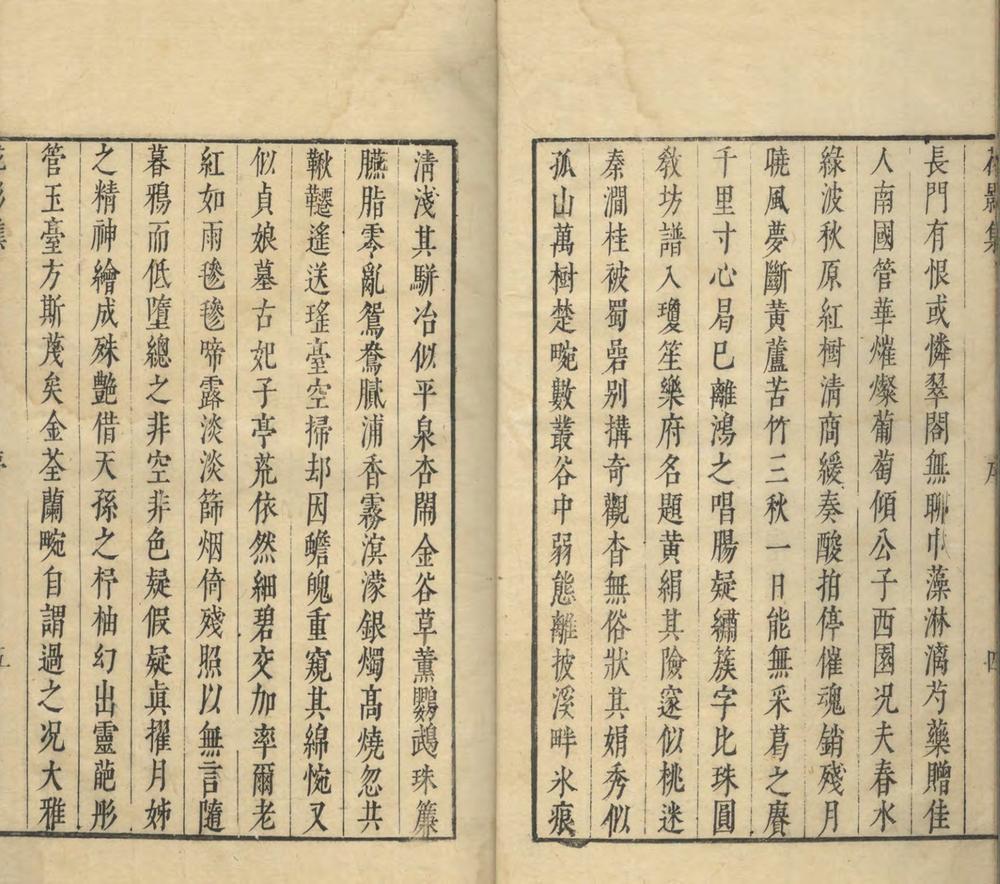 花影集 序 四
長門有恨或憐翠閣無聊巾藻淋漓芍藥贈佳
人南國管華熣燦葡萄傾公子西園况夫春水
綠波秋原紅樹清商緩奏酸拍停催魂銷殘月
曉風夢斷黃蘆苦竹三秋一日能無采葛之賡
千里寸心曷已離鴻之唱腸疑繡簇字比珠圓
敎坊譜入瓊笙樂府名題黃絹其險邃似桃迷
秦澗桂被蜀嵒别搆奇觀杳無俗狀其娟秀似
孤山萬樹楚畹數叢谷中弱態離披溪畔氷痕
清淺其駢冶似平泉杏閙金谷草薰鸚鵡珠簾
臙脂零亂鴛鴦膩浦香霧溟濛銀燭高燒忽共
鞦韆遙送瑤臺空掃却因蟾魄重窺其綿惋又
似貞娘墓古妃子亭荒依然細碧交加率爾老
紅如雨毿毿啼露淡淡篩烟倚殘照以無言隨
暮鴉而低墮總之非空非色疑假疑眞擢月姊
之精神繪成殊艷借天孫之杼柚幻出靈葩彤
管玉臺方斯蔑矣金荃蘭畹自謂過之况大雅
花影集 序 五